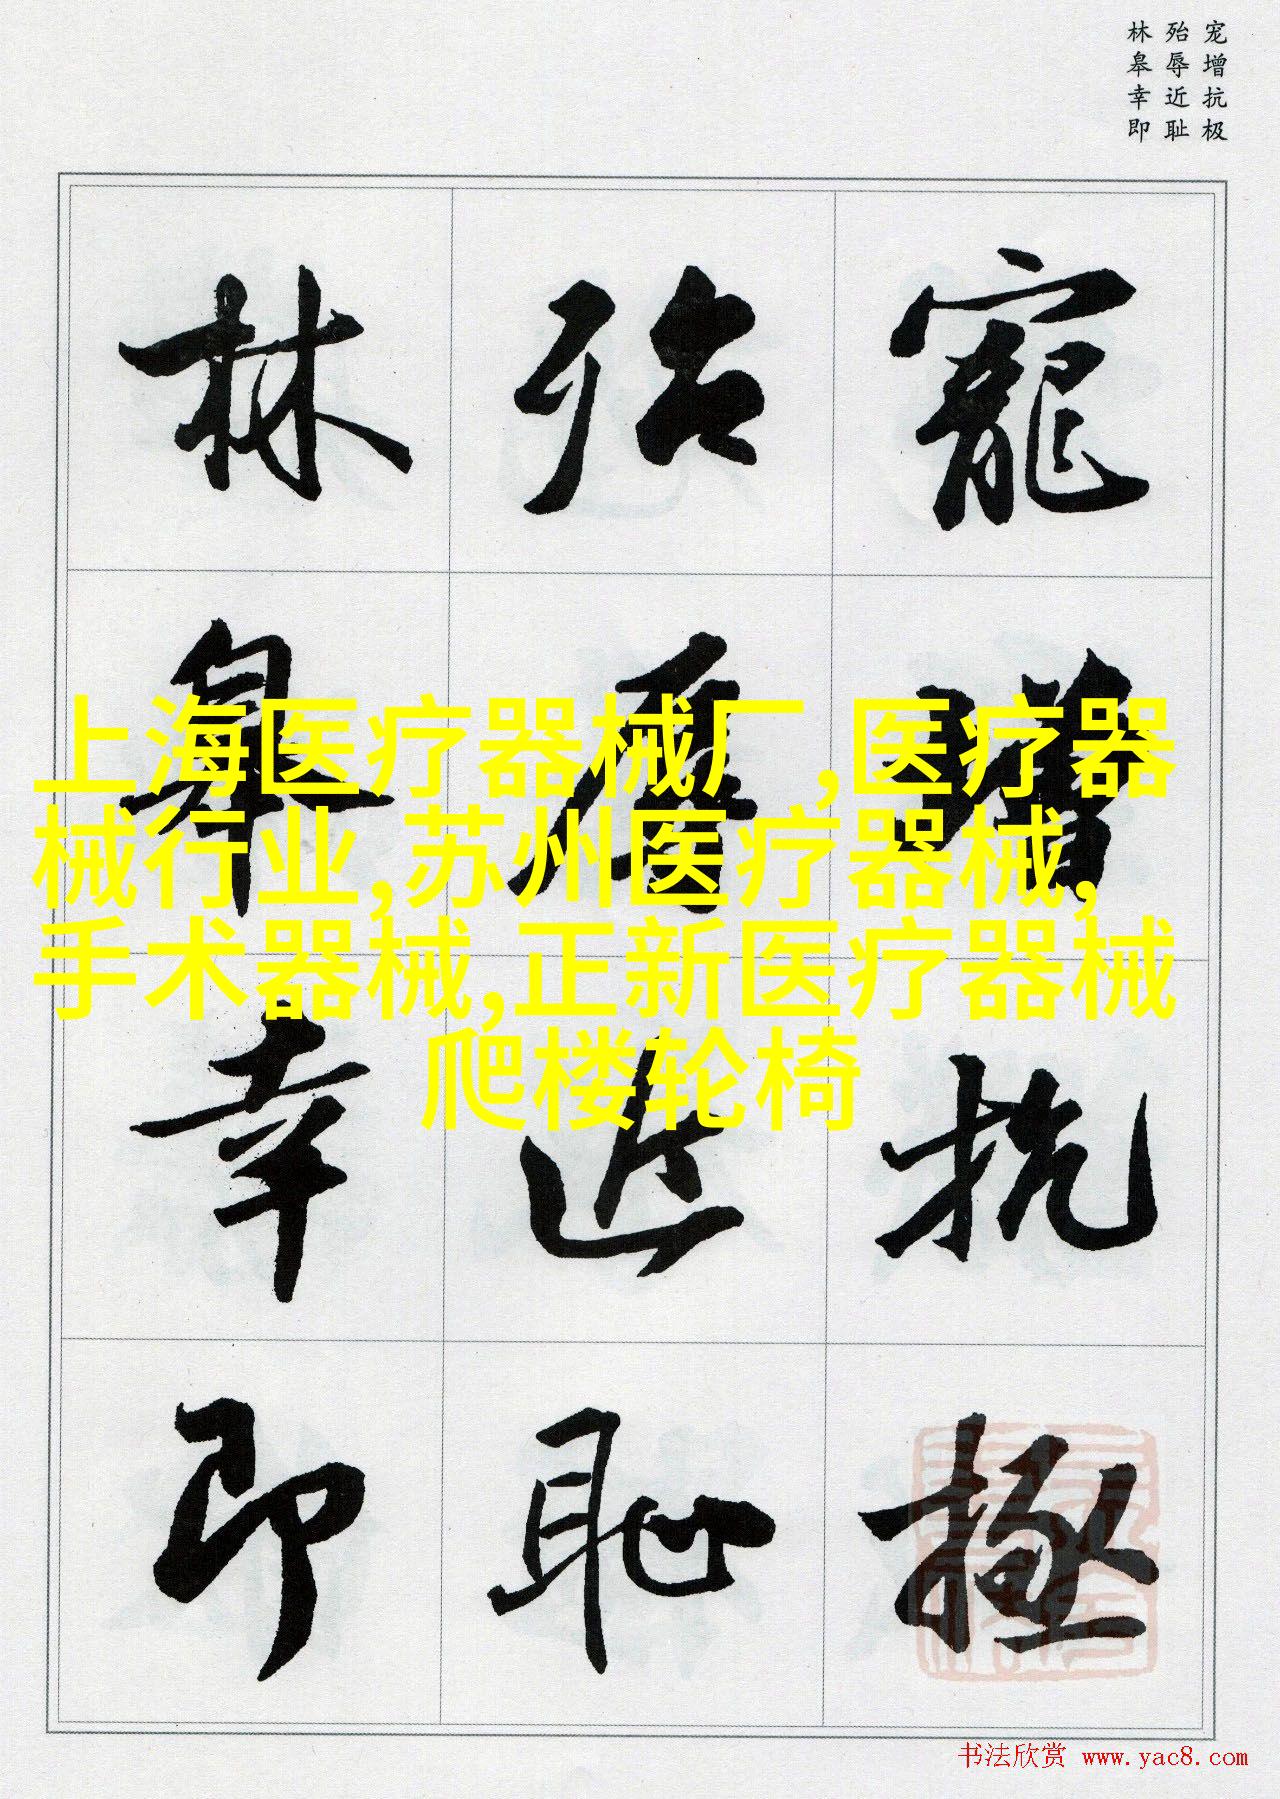 宠增抗极
殆辱近耻
林皋幸即
寵增抗極
殆辱近恥
林皋幸即
上海医疗器械厂,医疗器
械行业,苏州医疗器械,
手术器械,正新医疗器械
爬楼轮椅
书法欣赏 www.yac8.com